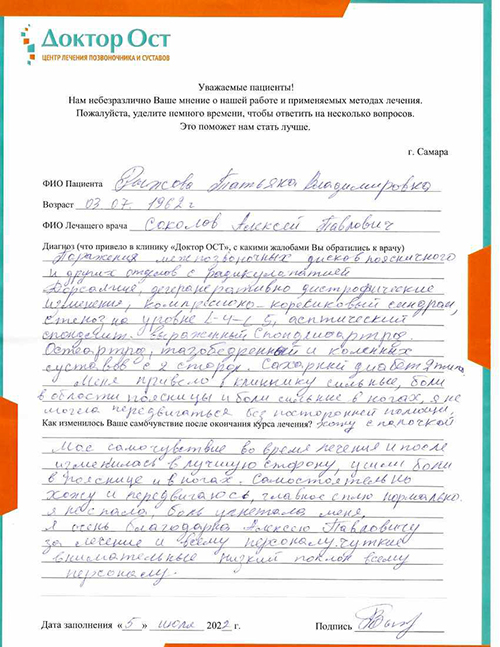 Доктор Ост
ЦЕНТР ЛЕЧЕНИЯ ПОЗВОНОЧНИКА И СУСТАВОВ
Уважаемые пациенты!
Нам небезразлично Ваше мнение о нашей работе и применяемых методах лечения.
Пожалуйста, уделите немного времени, чтобы ответить на несколько вопросов.
Это поможет нам стать лучше.
г. Самара
ФИО Пациента Рыжова Татьяна Владимировна
Возраст 03.07.1962 г
ФИО Лечащего врача Соколов Алексей Павлович
Диагноз (что привело в клинику «Доктор ОСТ», с какими жалобами Вы обратились к врачу)
Поражения межпозвоночных дисков поясничного
и других отделов с радикулопатией
Дорсалгие, дегенеративно дистрофические
изменение, компресионо-корешковый синдром,
стеноз на уровне L-4-L5, асптический
спондилит. Выраженный Спондилоартроз.
Остеартроз, тазобедренный и коленных
суставов с 2 сторон. Сахарный диабет 2 типа.
Меня привело в клинику сильные, боли
в области поясницы и боли сильние в ногах, я не
могла передвигаться без посторонней помощи,
Как изменилось Ваше самочувствие после окончания курса лечения? хожу с палочкой
Мое самочувствие во время лечения и после
изменилась в лучшую сторону, ушли боли
в пояснице и в ногах. Самостоятельно
хожу и передвигаюсь, главное сплю нормально.
я не спала, боль угнетала меня,
Я очень благодарна Алексею Павловичу
за лечение и всему персоналу чуткие
внимательные низкий поклон всему
персоналу.
Дата заполнения «5» июля 2022 г.
Подпись